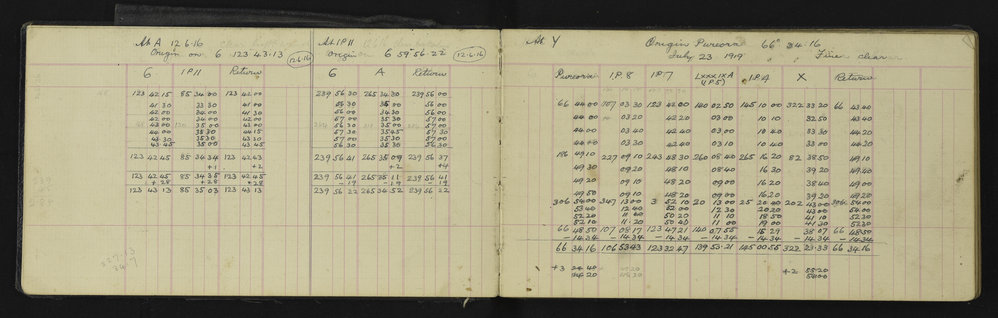 At A 12-6-16
Origin on 6 123.43.13 12-6-16
6 1P11 Return
123 42 15 85 34 00 123 42 00
41 30 33 30 41 00
42 00 34 00 41 30
42 00 34 00 42 00
43 00 35 00 43 00
44 00 35 30 44 15
43 30 35 30 43 30
43 45 35 00 43 45
123 42 45 85 34 34 123 42 43
+1 +2
123 42 45 85 34 35 123 42 45
+28 +28 +28
123 43 13 85 35 03 123 43 13
At 1P11
Origin 6 59°56.22 12-6-16
6 A Return
239 56 30 265 34 30 239 56 00
56 30 35 00 56 00
56 00 34 00 56 00
57 00 35 30 57 00
56 30 35 30 57 00
57 00 35 45 57 30
57 00 35 30 57 00
56 30 35 30 56 30
239 56 41 265 35 09 239 56 37
+2 +4
239 56 41 265 35 11 239 56 41
-19 -19 -19
239 56 22 265 34 52 239 56 22
At Y Origin Pureora 66° 34.16
July 23 1919 Fine clear
Pureora 1.P.8 1P.7 LXXXIXA (1P.5) 1P.A X Return
66 44.00 107 03 30 123 42 00 140 02 50 145 10 00 322 33 20 66 43 40
44.00 03 20 42 20 03 00 10 10 32 50 43 40
44.00 03 40 42 40 03 00 10 40 33 30 44 20
44.00 03 30 42 40 03 10 10 40 33 00 44 20
186 49.10 227 09 10 243 48 30 260 08 40 265 16 20 82 38 50 49 10
49 30 09 20 48 10 08 40 16 30 39 20 49 40
49 20 09 10 48 20 09 00 16 20 38 40 49 00
49 50 09 10 48 20 09 00 16 20 39 20 49 20
306 54 00 347 13 00 3 52 10 20 13 00 25 20 40 202 43 00 306 54 00
53 40 12 40 52 00 12 30 20 20 43 00 54 00
52 20 11 40 50 20 11 10 18 50 41 10 52 30
52 10 11 20 50 40 11 00 19 00 41 30 52 30
66 48.50 107 08.17 123 47.21 140 07 55 15 29 38 07 66 48.50
-14.34 -14.34 -14.34 -14.34 -14.34 -14.34 -14.34
66 34.16 106 53.43 123 32 47 139 53.21 145 00.55 322 23.33 66 34.16
+3 +2 55.20